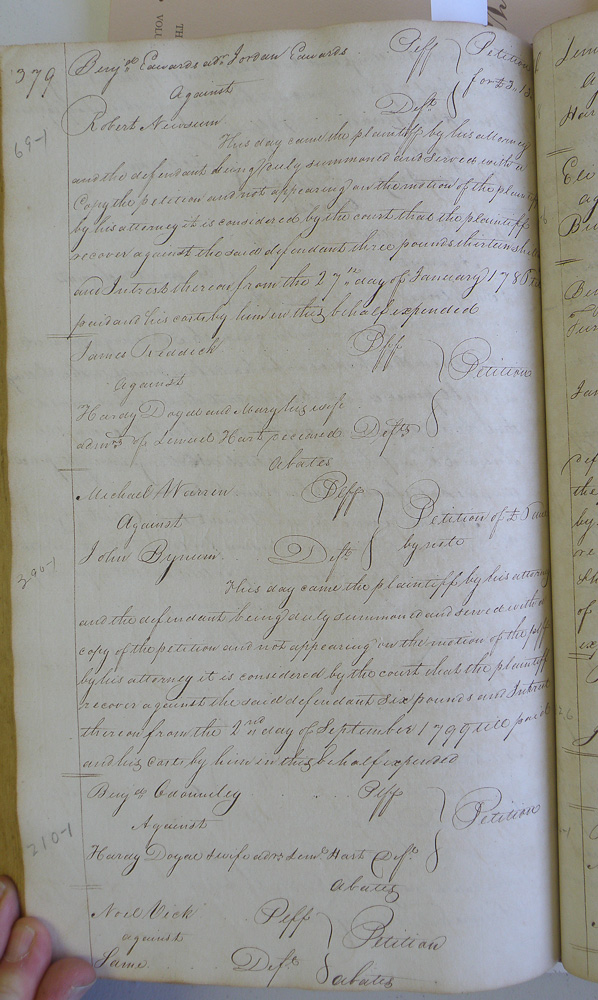 379
Benjn Edwards adr Jordan Edwards Plff Petition
Against for £3..13
Robert Newsum Deft
69-1
This day came the plaintiff by his attorney
and the defendant being duly summoned and served with a
Copy the petition and not appearing on the motion of the plaintiff
by his attorney it is considered by the court that the plaintiff
recover against the said defendant three pounds thirteen
and Intrest thereon from the 27th day of January till
paid and his costs by him in this behalf expended
James Reddick Plff
Against Petition
Hardy Doyal and Mary his wife
admrs of Lemuel Hart Defts
abates
Michael Warren Plff
Against Petition of £
by note
John Bynum Deft
390-1
This day came the plaintiff by his attorney
and the defendant being duly summoned and served with a
copy of the petition and not appearing on the motion of the plff
by his attorney it is considered by the court that the plaintiff
recover against the said defendant Six pounds and Intrest
thereon from the 2nd day of September 1799 till paid
and his costs by him in this behalf expended
Benjn Plff
Against Petition
210-1
Hardy Doyal & wife adrs Lemu Hart Defts
abates
Noel Vick Plff
against Petition
Same Defts abates